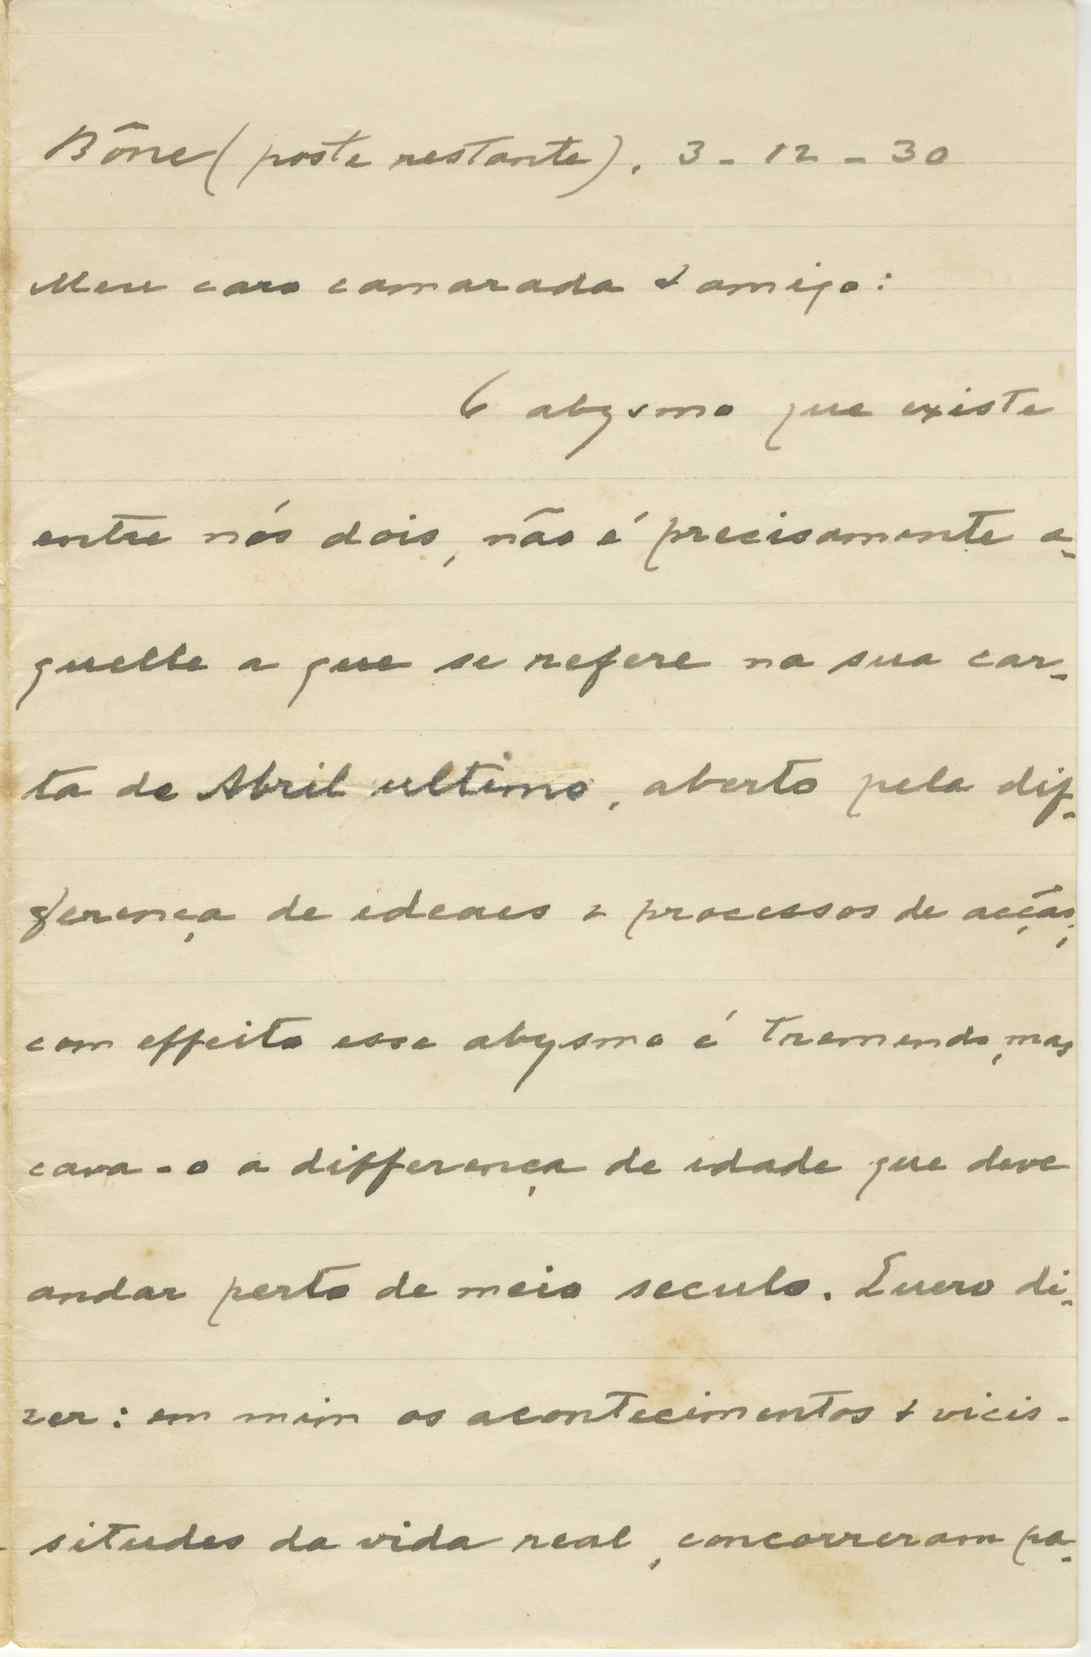 Bône (poste restante), 3-12-30
Meu caro camarada & amigo:
O abysmo que existe
entre nós dois, não é precisamente a-
quelle a que se refere na sua car-
ta de Abril ultimo, aberto pela dif-
ferença de ideaes & processos de acção;
com effeito esse abysmo é tremendo, mas
cava-o a differença de idade que deve
andar perto de meio seculo. Quero di-
zer: em mim os acontecimentos & vicis-
situdes da vida real, concorreram pa-